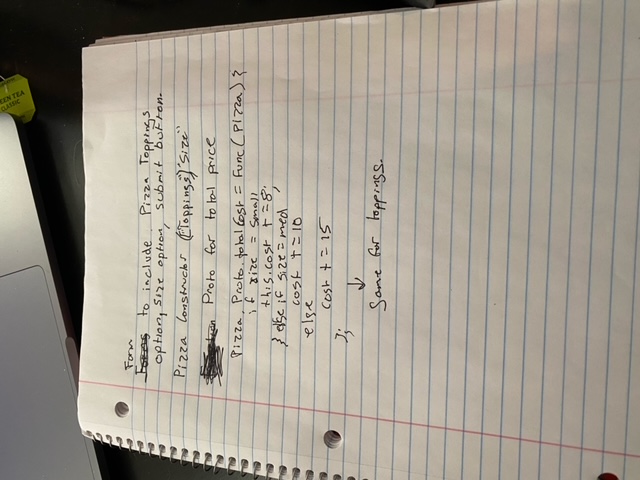 Form
to include Pizza Toppings
option, size option, submit button.
Pizza Constructor (["Toppings"] "Size"
Proto for total price
Pizza. Proto. total Cost = Func (Pizza) {
if size = small
this.cost += 8;
} else if size = med
cost += 10
else
cost += 15
};
↓
Same for toppings.
GREEN TEA
CLASSIC